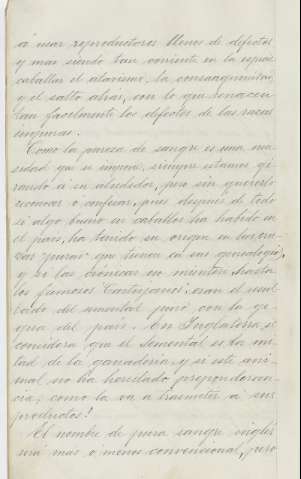 á usar reproductores llenos de defectos
y mas siendo tan corriente en la especie
caballar el atavismo, la consanguinidad
y el salto atrás, con lo que renacen
tan facilmente los defectos de las razas
impuras.
Como la pureza de sangre es una nece
sidad que se impone, siempre estamos gi
rando á su alrededor, pero sin quererlo
reconocer ó confesar, pues despues de todo
si algo bueno en caballos ha habido en
el pais, ha tenido su origen en los cru
zas "puras" que tienen en sus genealogias
y si las crónicas no mienten, hasta
los famosos Cartujanos eran el resul
tado del semental puro con la ye
gua del pais. En Inglaterra se
considera que el semental es la mi
tad de la ganaderia, y si este ani
mal no ha heredado preponderan
cia, como la va á trasmitir á sus
productos?
El nombre de pura sangre inglés
será mas ó menos convencional, pero